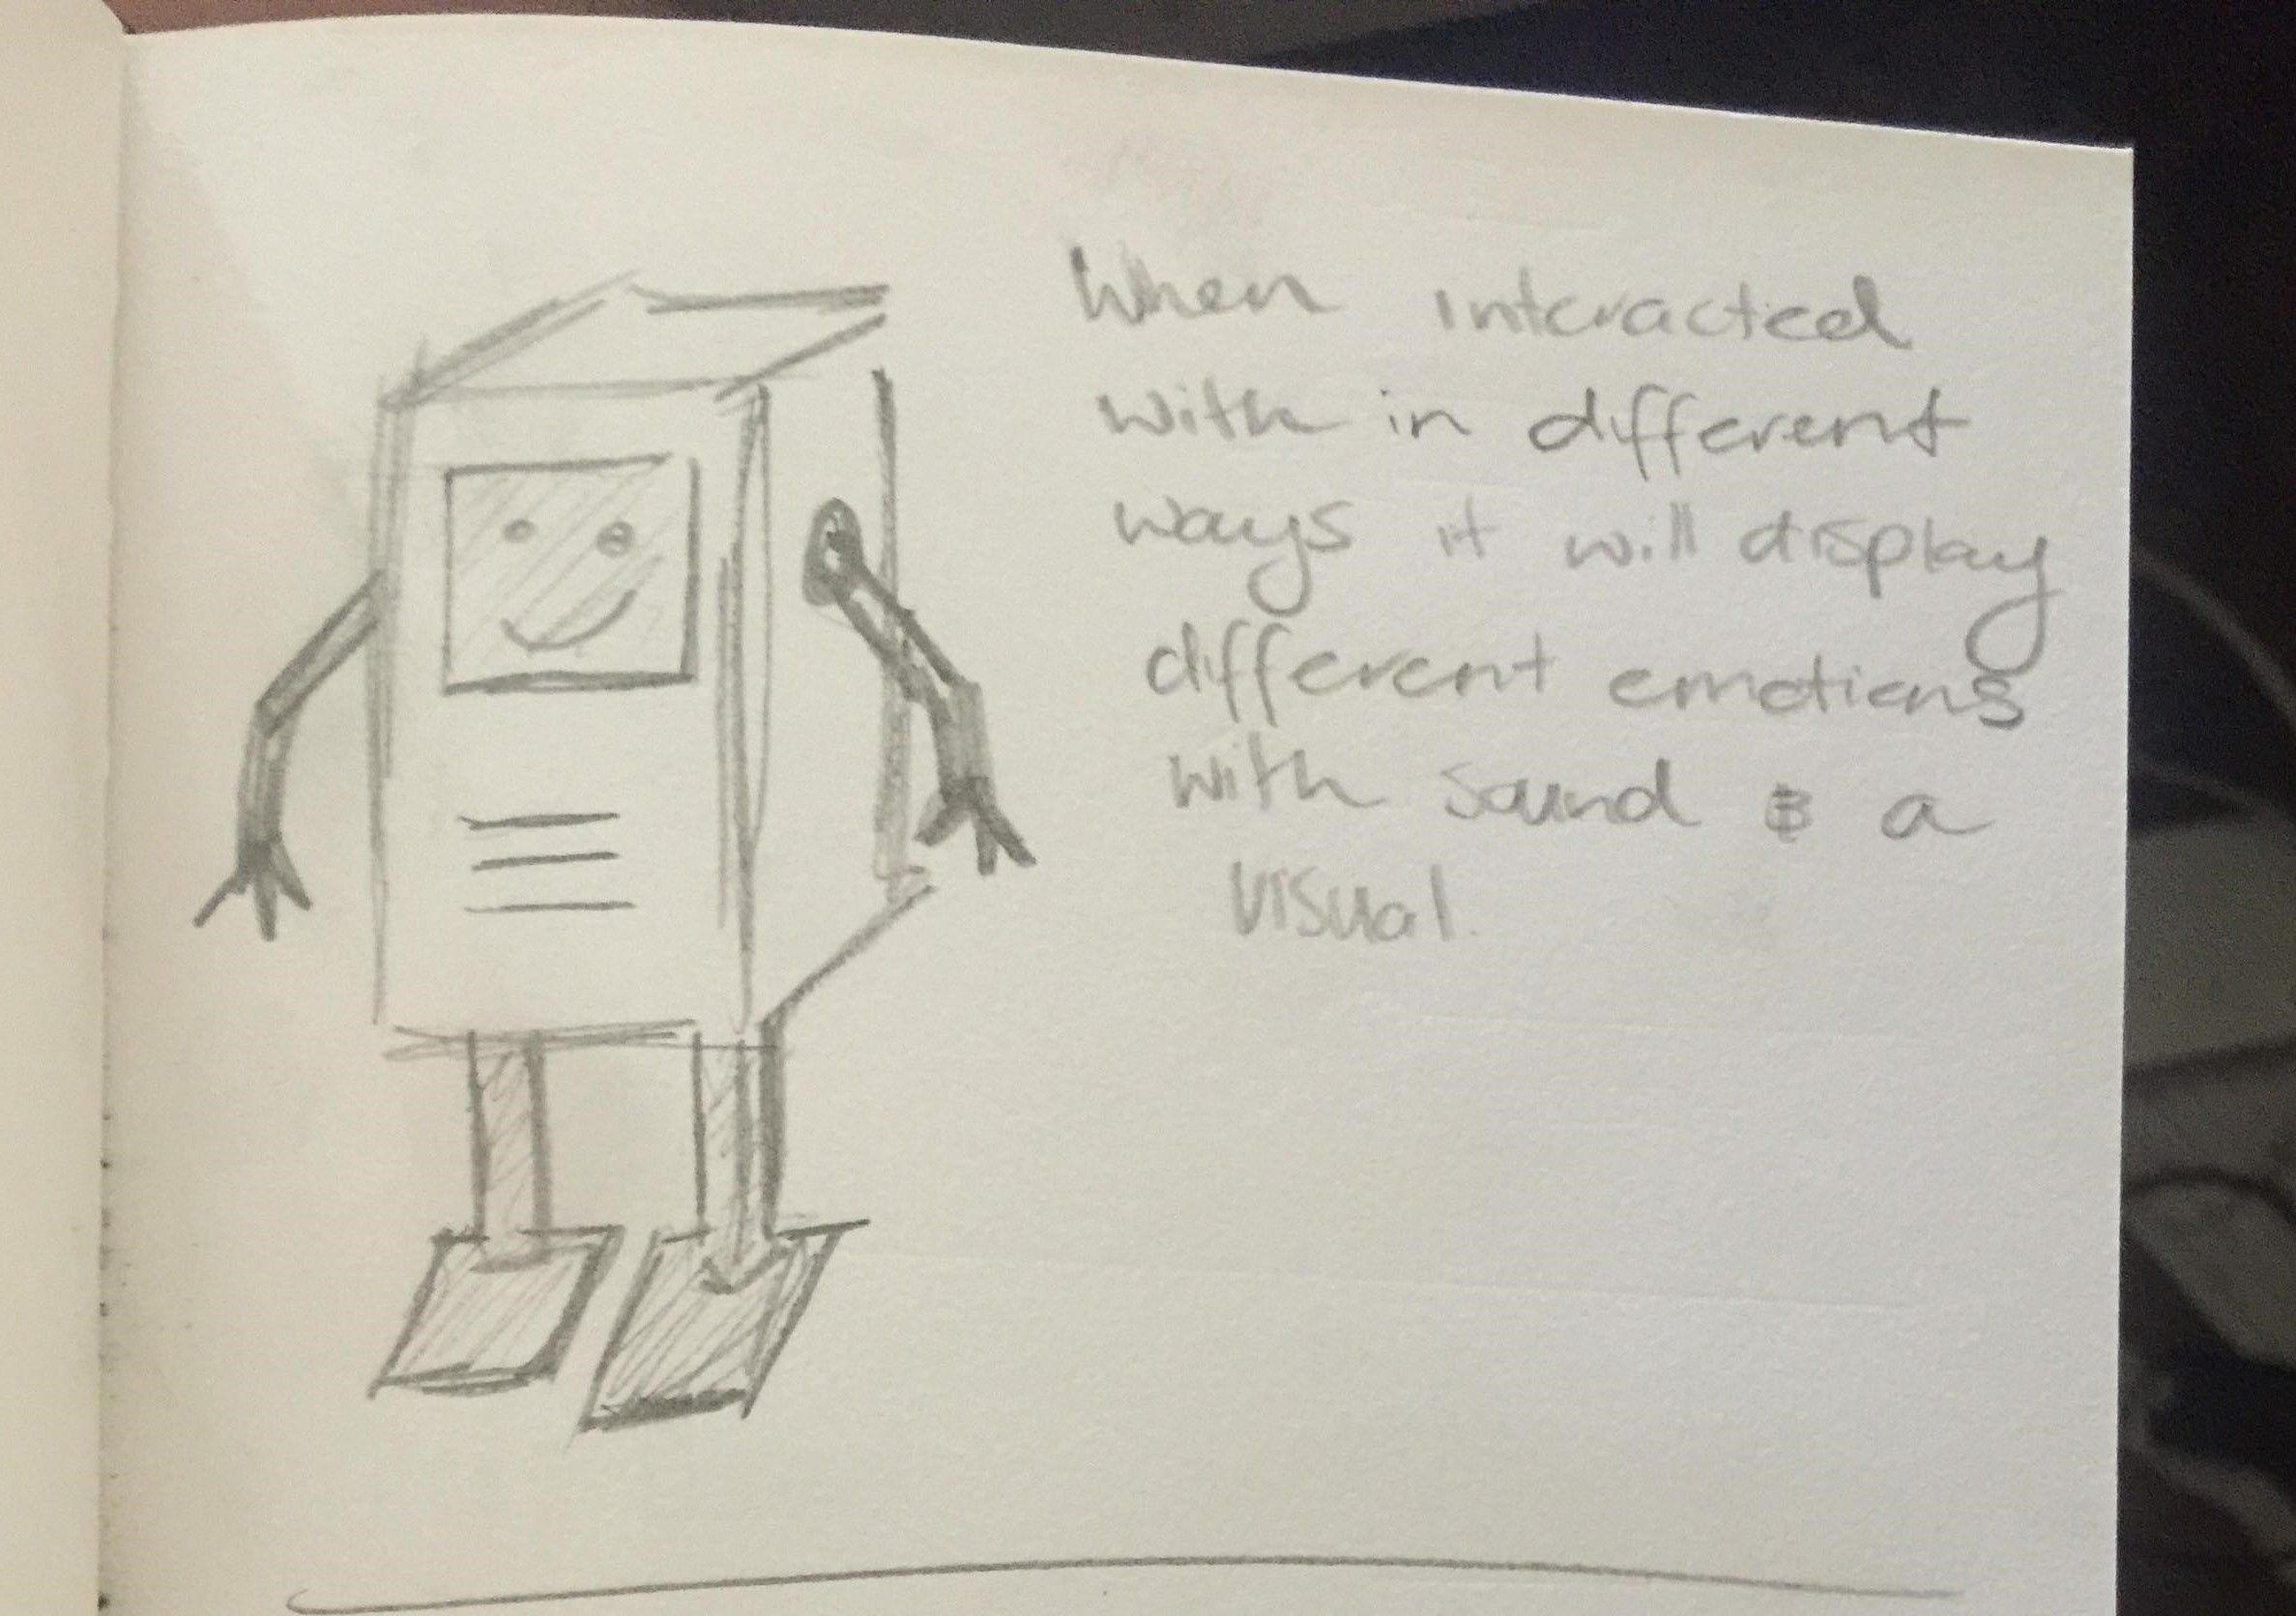 When interacted
with in different
ways it will display
different emotions
with sound & a
visual.